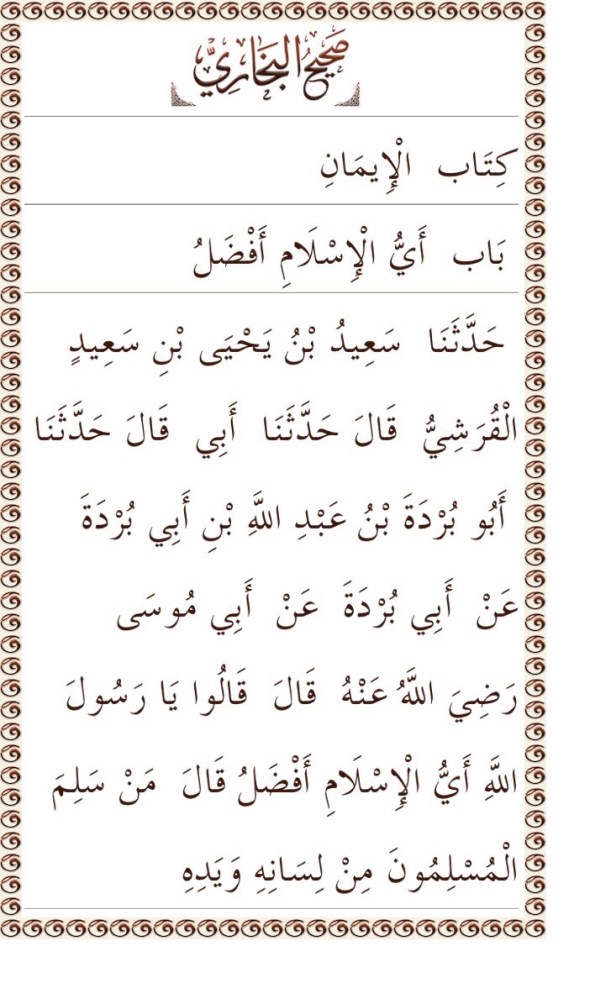 صَحِيحُ البُخَارِيِّ
كِتَاب الْإِيمَانِ
بَاب أَيُّ الْإِسْلَامِ أَفْضَلُ
حَدَّثَنَا سَعِيدُ بْنُ يَحْيَى بْنِ سَعِيدٍ
الْقُرَشِيُّ قَالَ حَدَّثَنَا أَبِي قَالَ حَدَّثَنَا
أَبُو بُرْدَةَ بْنُ عَبْدِ اللَّهِ بْنِ أَبِي بُرْدَةَ
عَنْ أَبِي بُرْدَةَ عَنْ أَبِي مُوسَى
رَضِيَ اللَّهُ عَنْهُ قَالَ قَالُوا يَا رَسُولَ
اللَّهِ أَيُّ الْإِسْلَامِ أَفْضَلُ قَالَ مَنْ سَلِمَ
الْمُسْلِمُونَ مِنْ لِسَانِهِ وَيَدِهِ